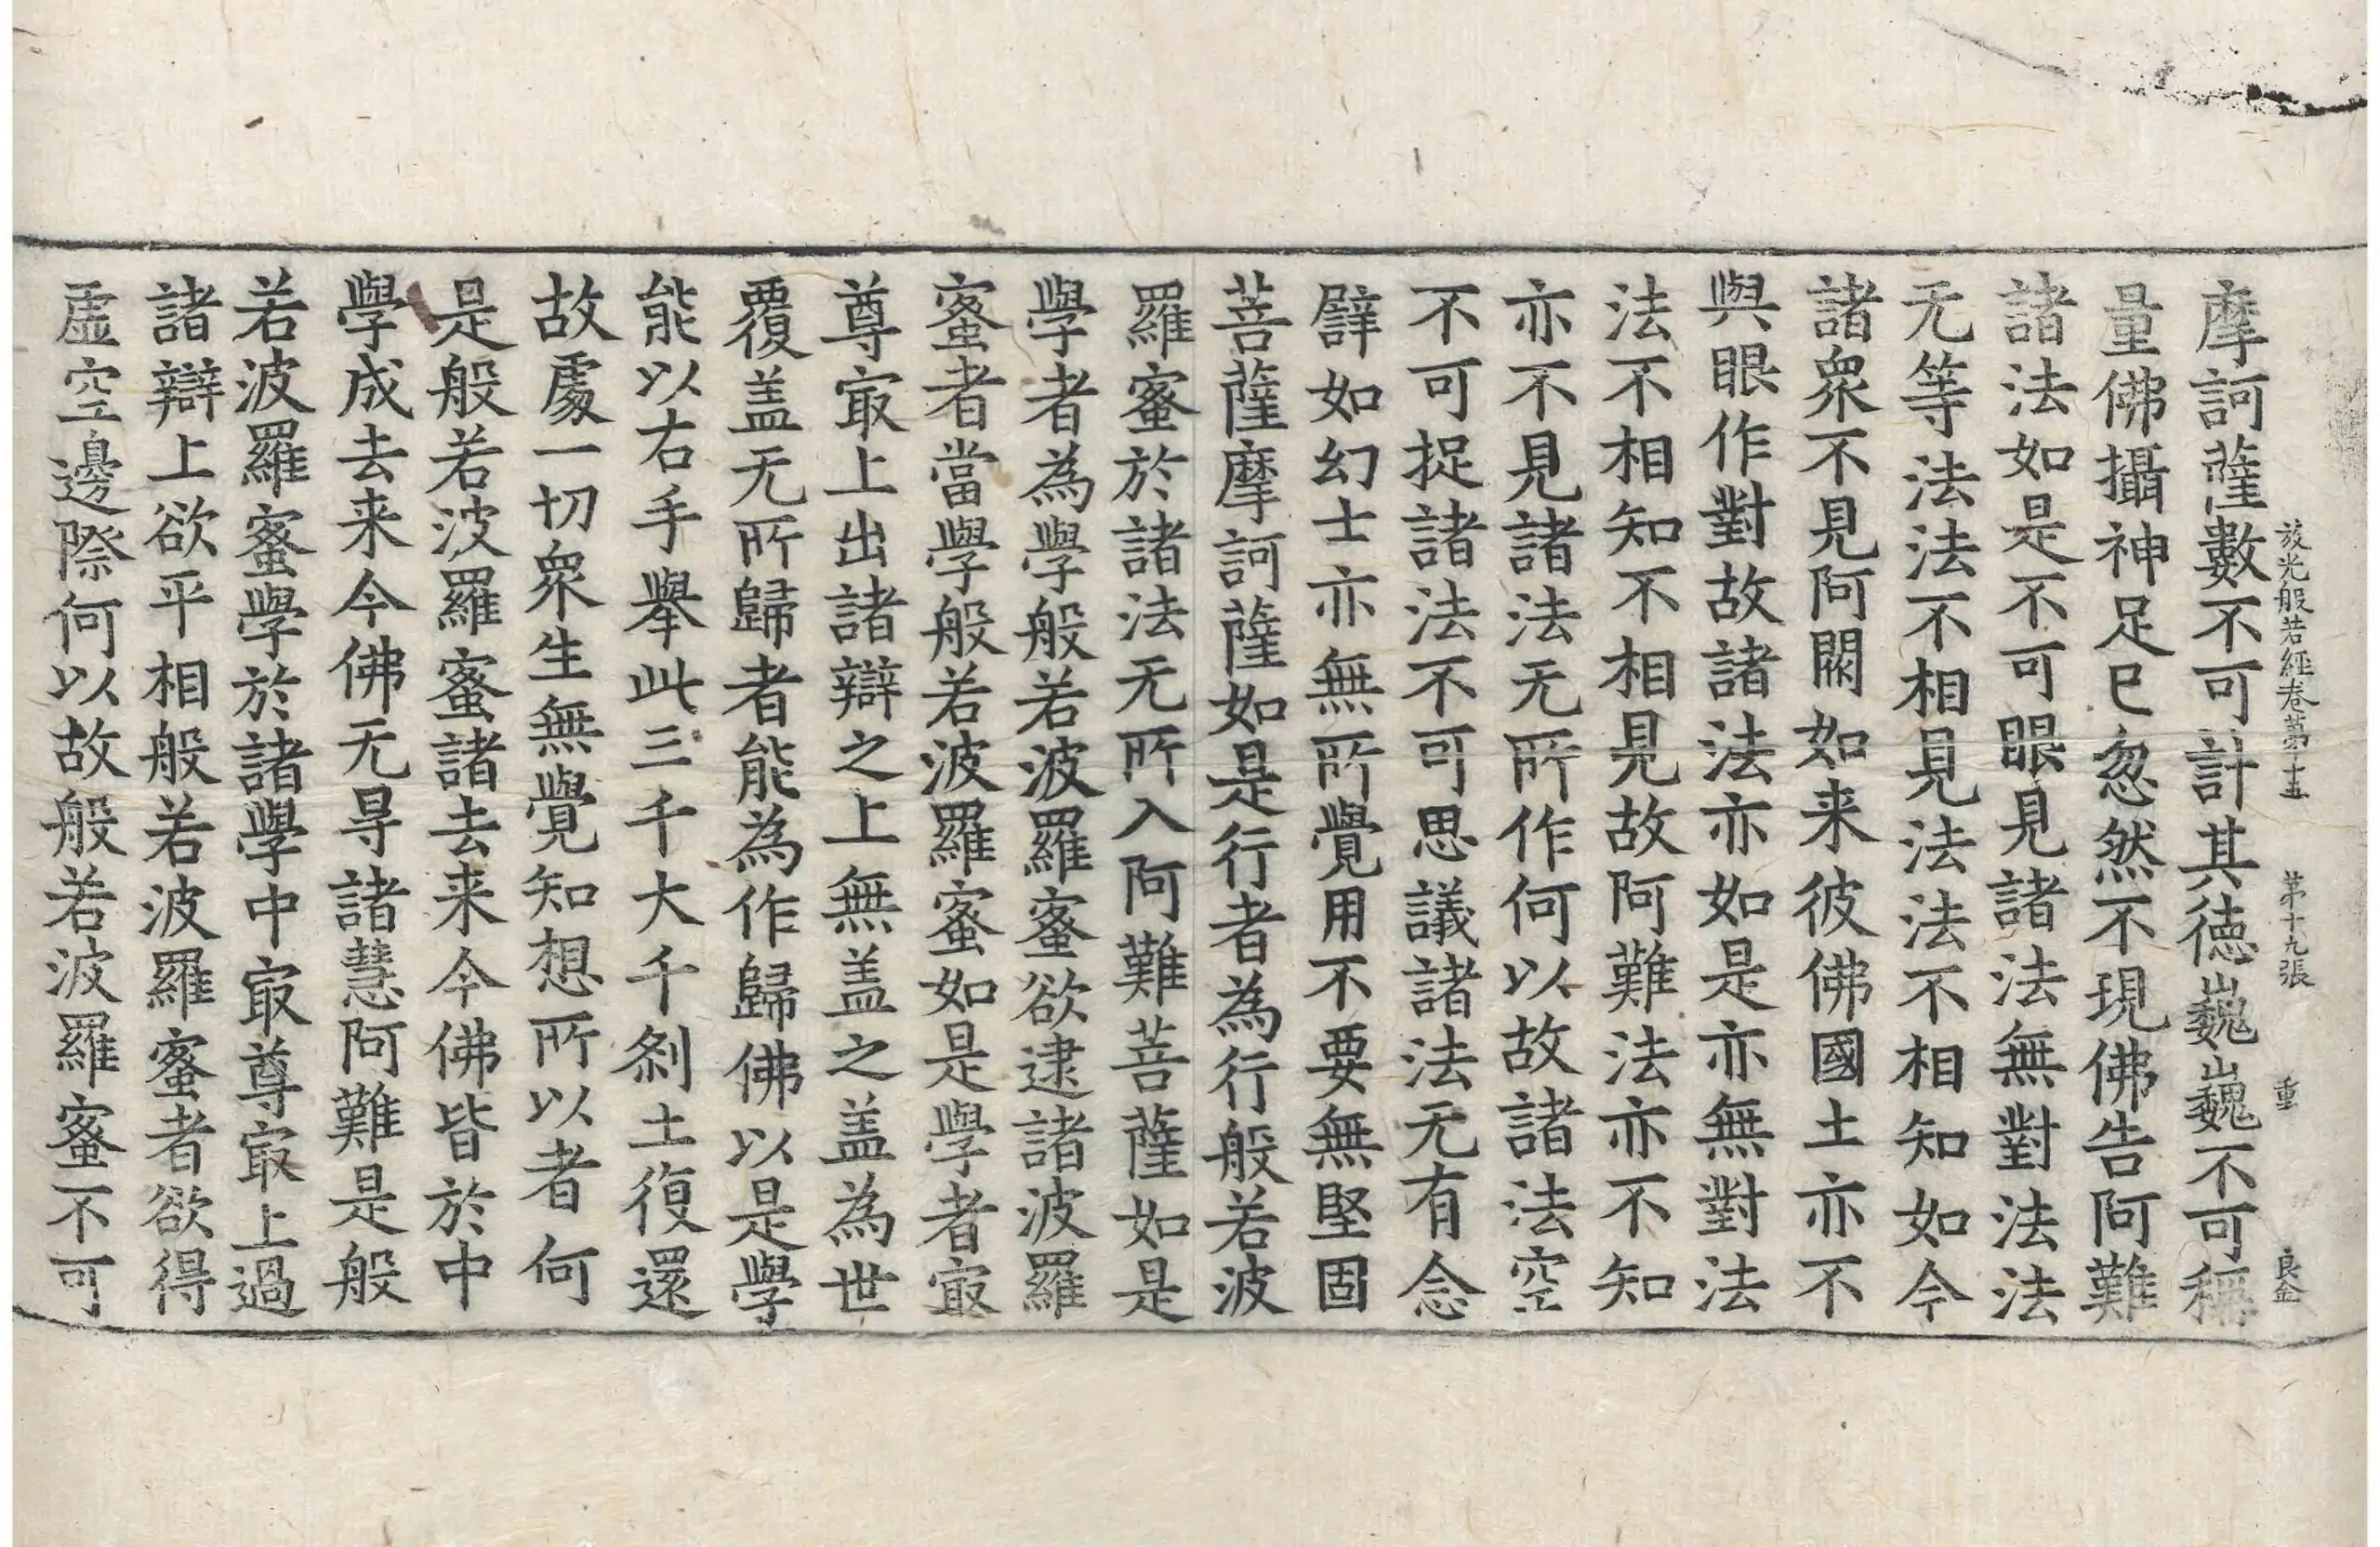 放光般若經卷第十五 第十九張 重 良金
摩訶薩數不可計其德巍巍不可稱
量佛攝神足已忽然不現佛告阿難
諸法如是不可眼見諸法無對法法
无等法法不相見法法不相知如今
諸衆不見阿閦如来彼佛國土亦不
與眼作對故諸法亦如是亦無對法
法不相知不相見故阿難法亦不知
亦不見諸法无所作何以故諸法空
不可捉諸法不可思議諸法无有念
譬如幻士亦無所覺用不要無堅固
菩薩摩訶薩如是行者為行般若波
羅蜜於諸法无所入阿難菩薩如是
學者為學般若波羅蜜欲逮諸波羅
蜜者當學般若波羅蜜如是學者㝡
尊㝡上出諸辯之上無盖之盖為世
覆盖无所歸者能為作歸佛以是學
能以右手舉此三千大千剎土復還
故處一切衆生無覺知想所以者何
是般若波羅蜜諸去来今佛皆於中
學成去来今佛无㝵諸慧阿難是般
若波羅蜜學於諸學中㝡尊㝡上過
諸辯上欲平相般若波羅蜜者欲得
虛空邊際何以故般若波羅蜜不可